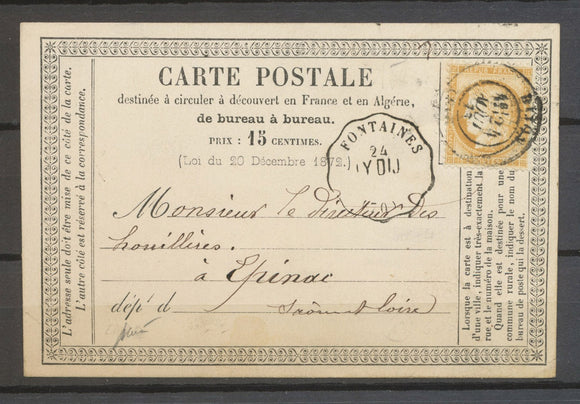 CARTE POSTALE
destinée à circuler à découvert en France et en Algérie,
de bureau à bureau.
PRIX : 15 CENTIMES.
(Loi du 20 Décembre 1872.)
FONTAINES
24
Y DIJ
REPUB FRANC
L'adresse seule doit être mise de ce côté de la carte.
L'autre côté est réservé à la correspondance.
Monsieur le Directeur Des
houillères.
à Epinac
dép.t d
Saône et Loire
Lorsque la carte est à destination
d'une ville, indiquer très-exactement la
rue et le numéro de la maison.
Quand elle est destinée pour une
commune rurale, indiquer le nom du
bureau de poste qui la dessert.